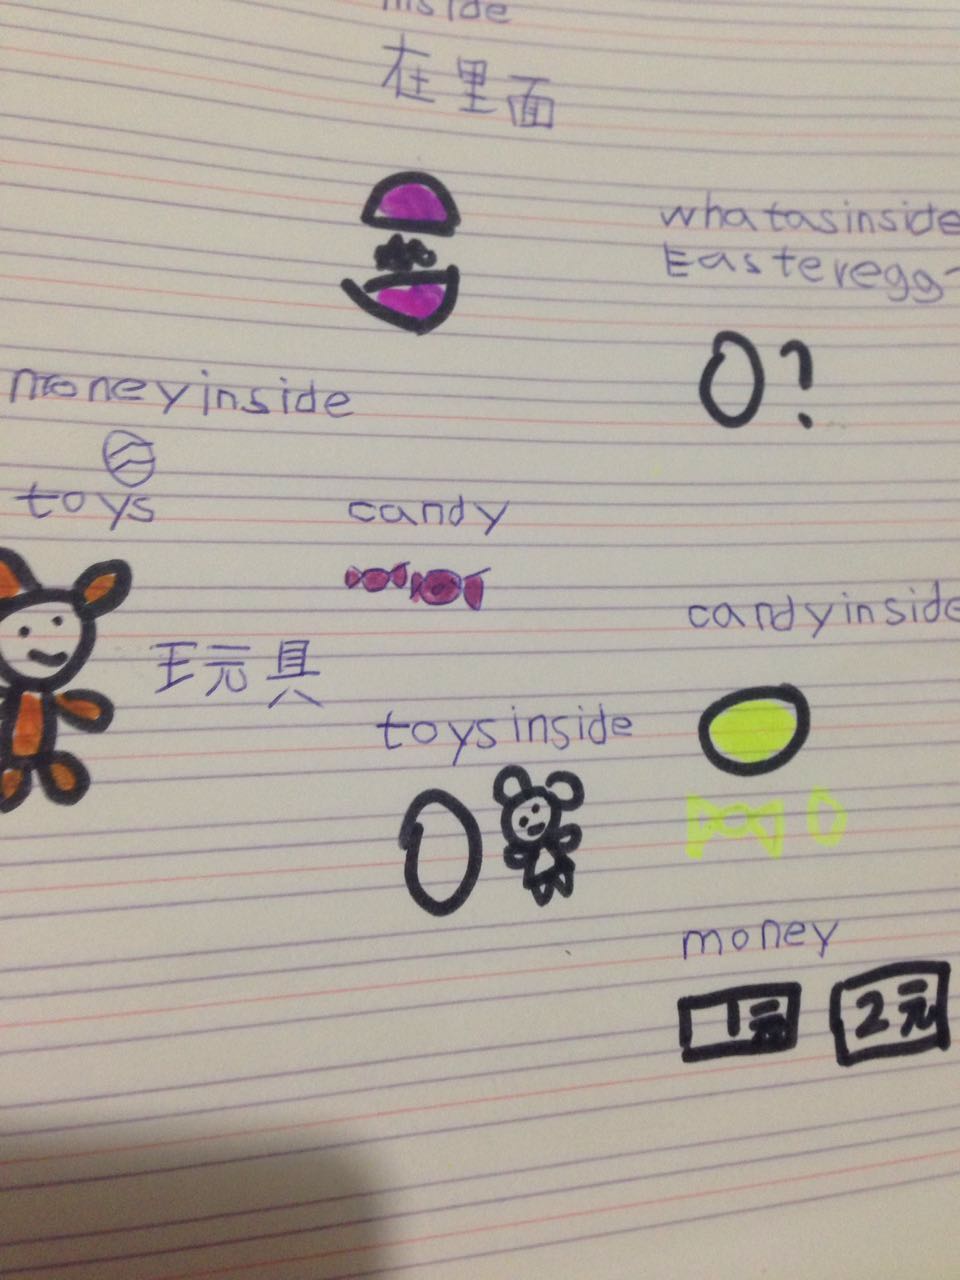 inside
在里面
whatasinside
Easteregg
moneyinside
toys
candy
玩元具
candyinside
toysinside
money
1元
2元